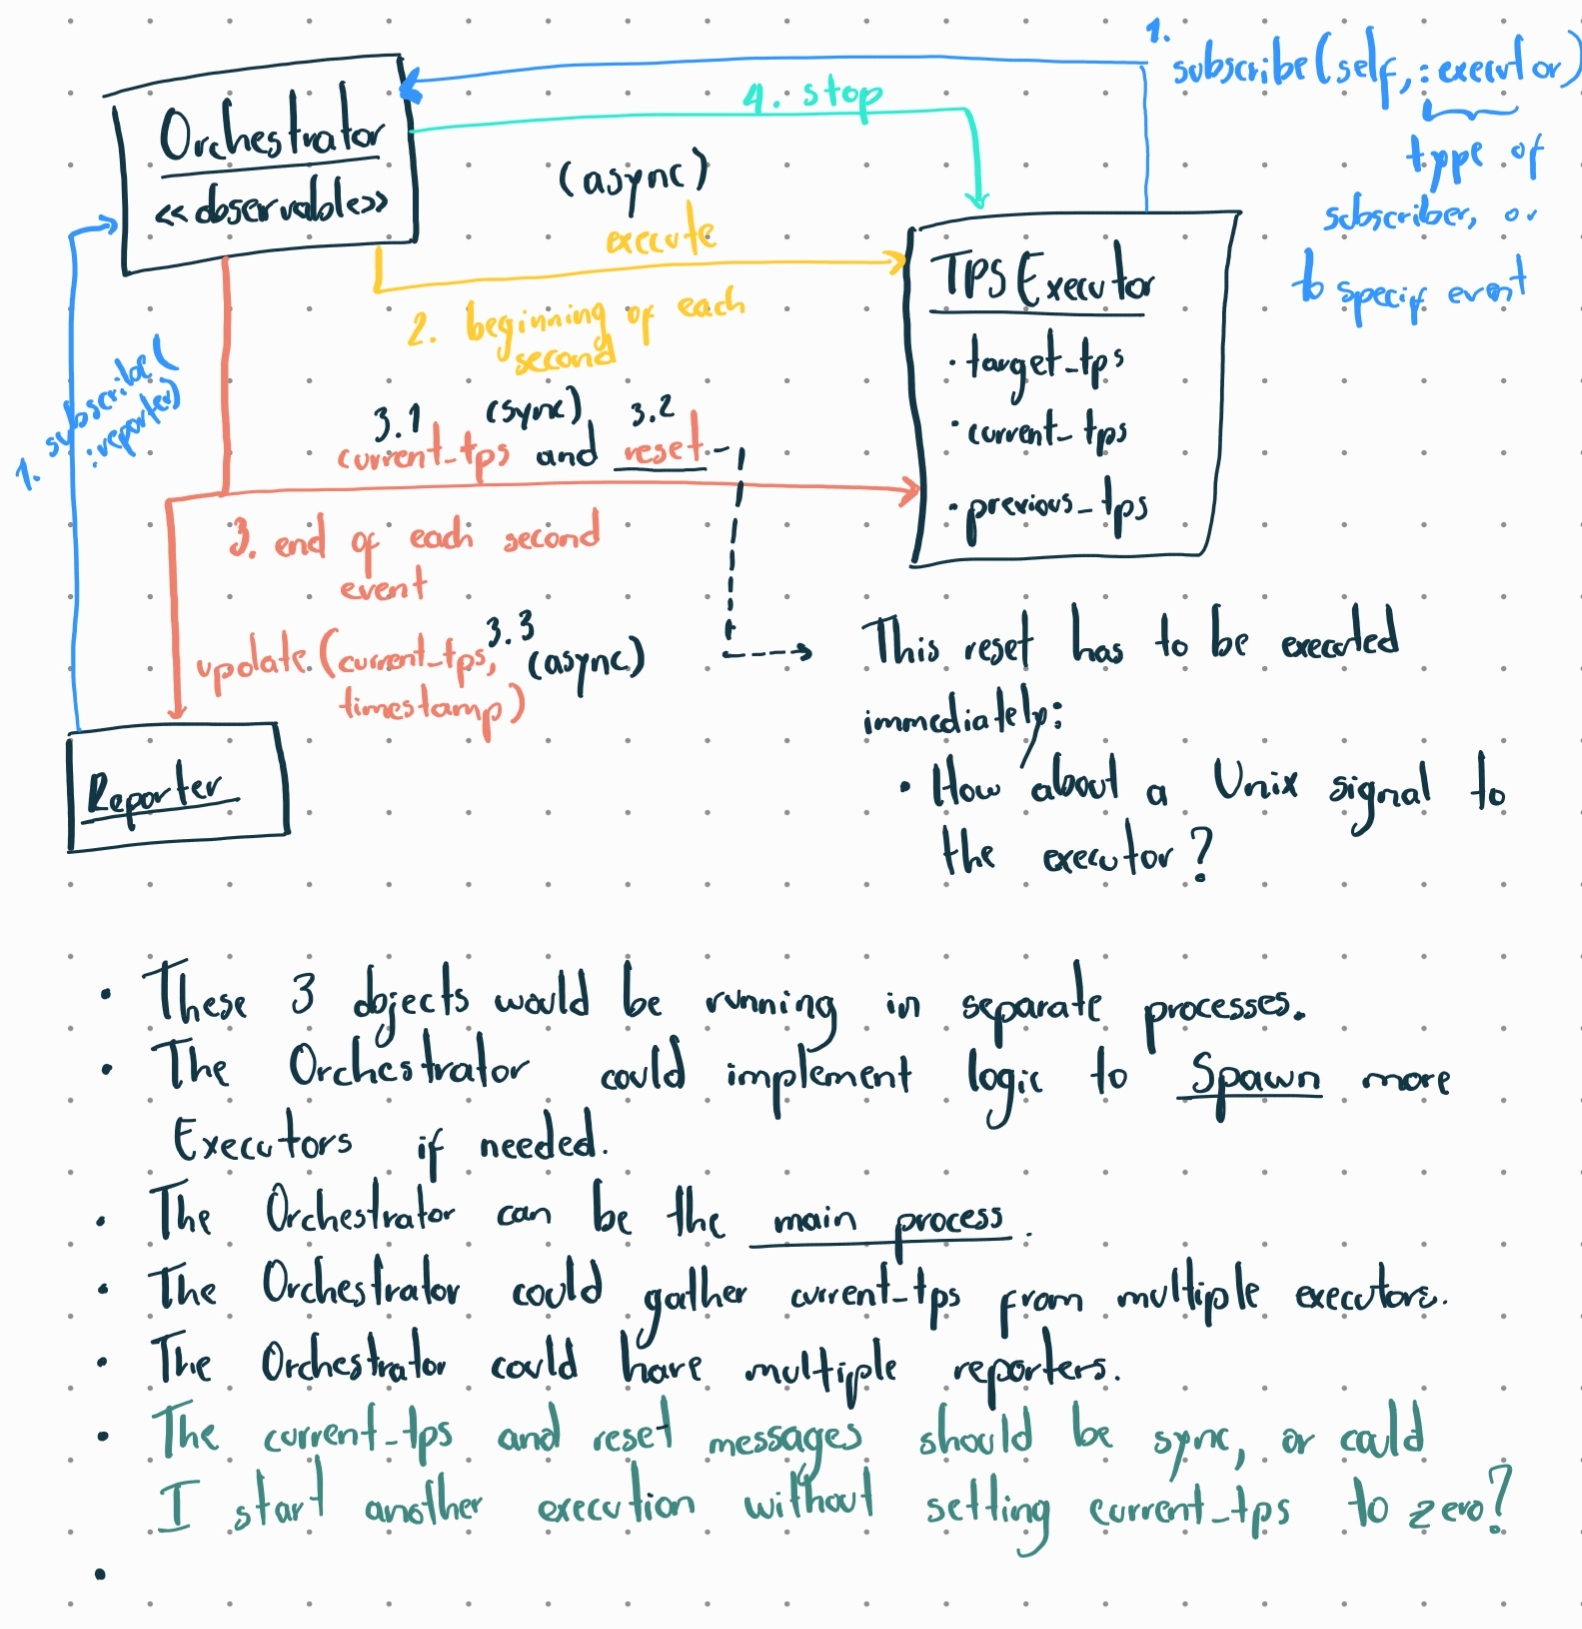 1.
subscribe(self, :executor)
type of
subscriber, or
to specif event
Orchestrator
<<observable>>
4. stop
(async)
execute
2. beginning of each
second
TPS Executor
· target_tps
· current_tps
· previous_tps
1. subscribe(
:reporter)
3.1 (sync) 3.2
current_tps and reset
3. end of each second
event
3.3
update(current_tps, (async)
timestamp)
Reporter
This reset has to be executed
immediately:
• How about a Unix signal to
the executor?
• These 3 objects would be running in separate processes.
• The Orchestrator could implement logic to Spawn more
Executors if needed.
• The Orchestrator can be the main process.
• The Orchestrator could gather current_tps from multiple executors.
• The Orchestrator could have multiple reporters.
• The current_tps and reset messages should be sync, or could
I start another execution without setting current_tps to zero?
•